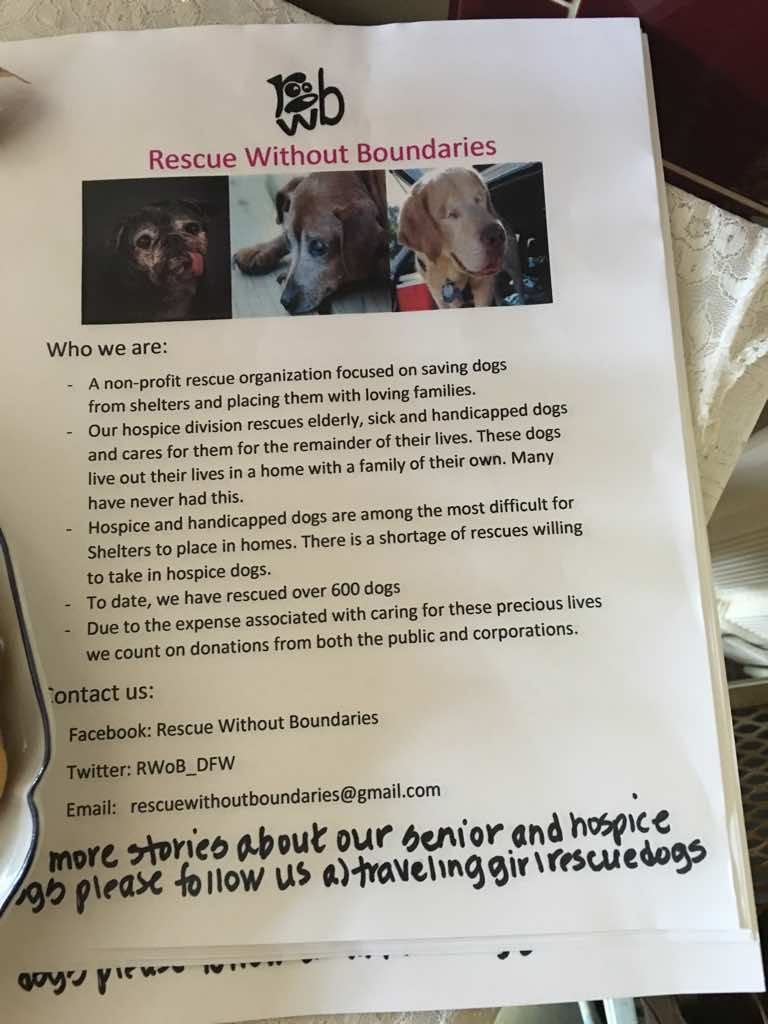 rwb
Rescue Without Boundaries
Who we are:
- A non-profit rescue organization focused on saving dogs
from shelters and placing them with loving families.
- Our hospice division rescues elderly, sick and handicapped dogs
and cares for them for the remainder of their lives. These dogs
live out their lives in a home with a family of their own. Many
have never had this.
- Hospice and handicapped dogs are among the most difficult for
Shelters to place in homes. There is a shortage of rescues willing
to take in hospice dogs.
- To date, we have rescued over 600 dogs
- Due to the expense associated with caring for these precious lives
we count on donations from both the public and corporations.
Contact us:
Facebook: Rescue Without Boundaries
Twitter: RWoB_DFW
Email: rescuewithoutboundaries@gmail.com
more stories about our senior and hospice
ogs please follow us a)travelinggirlrescuedogs
dogs please follow